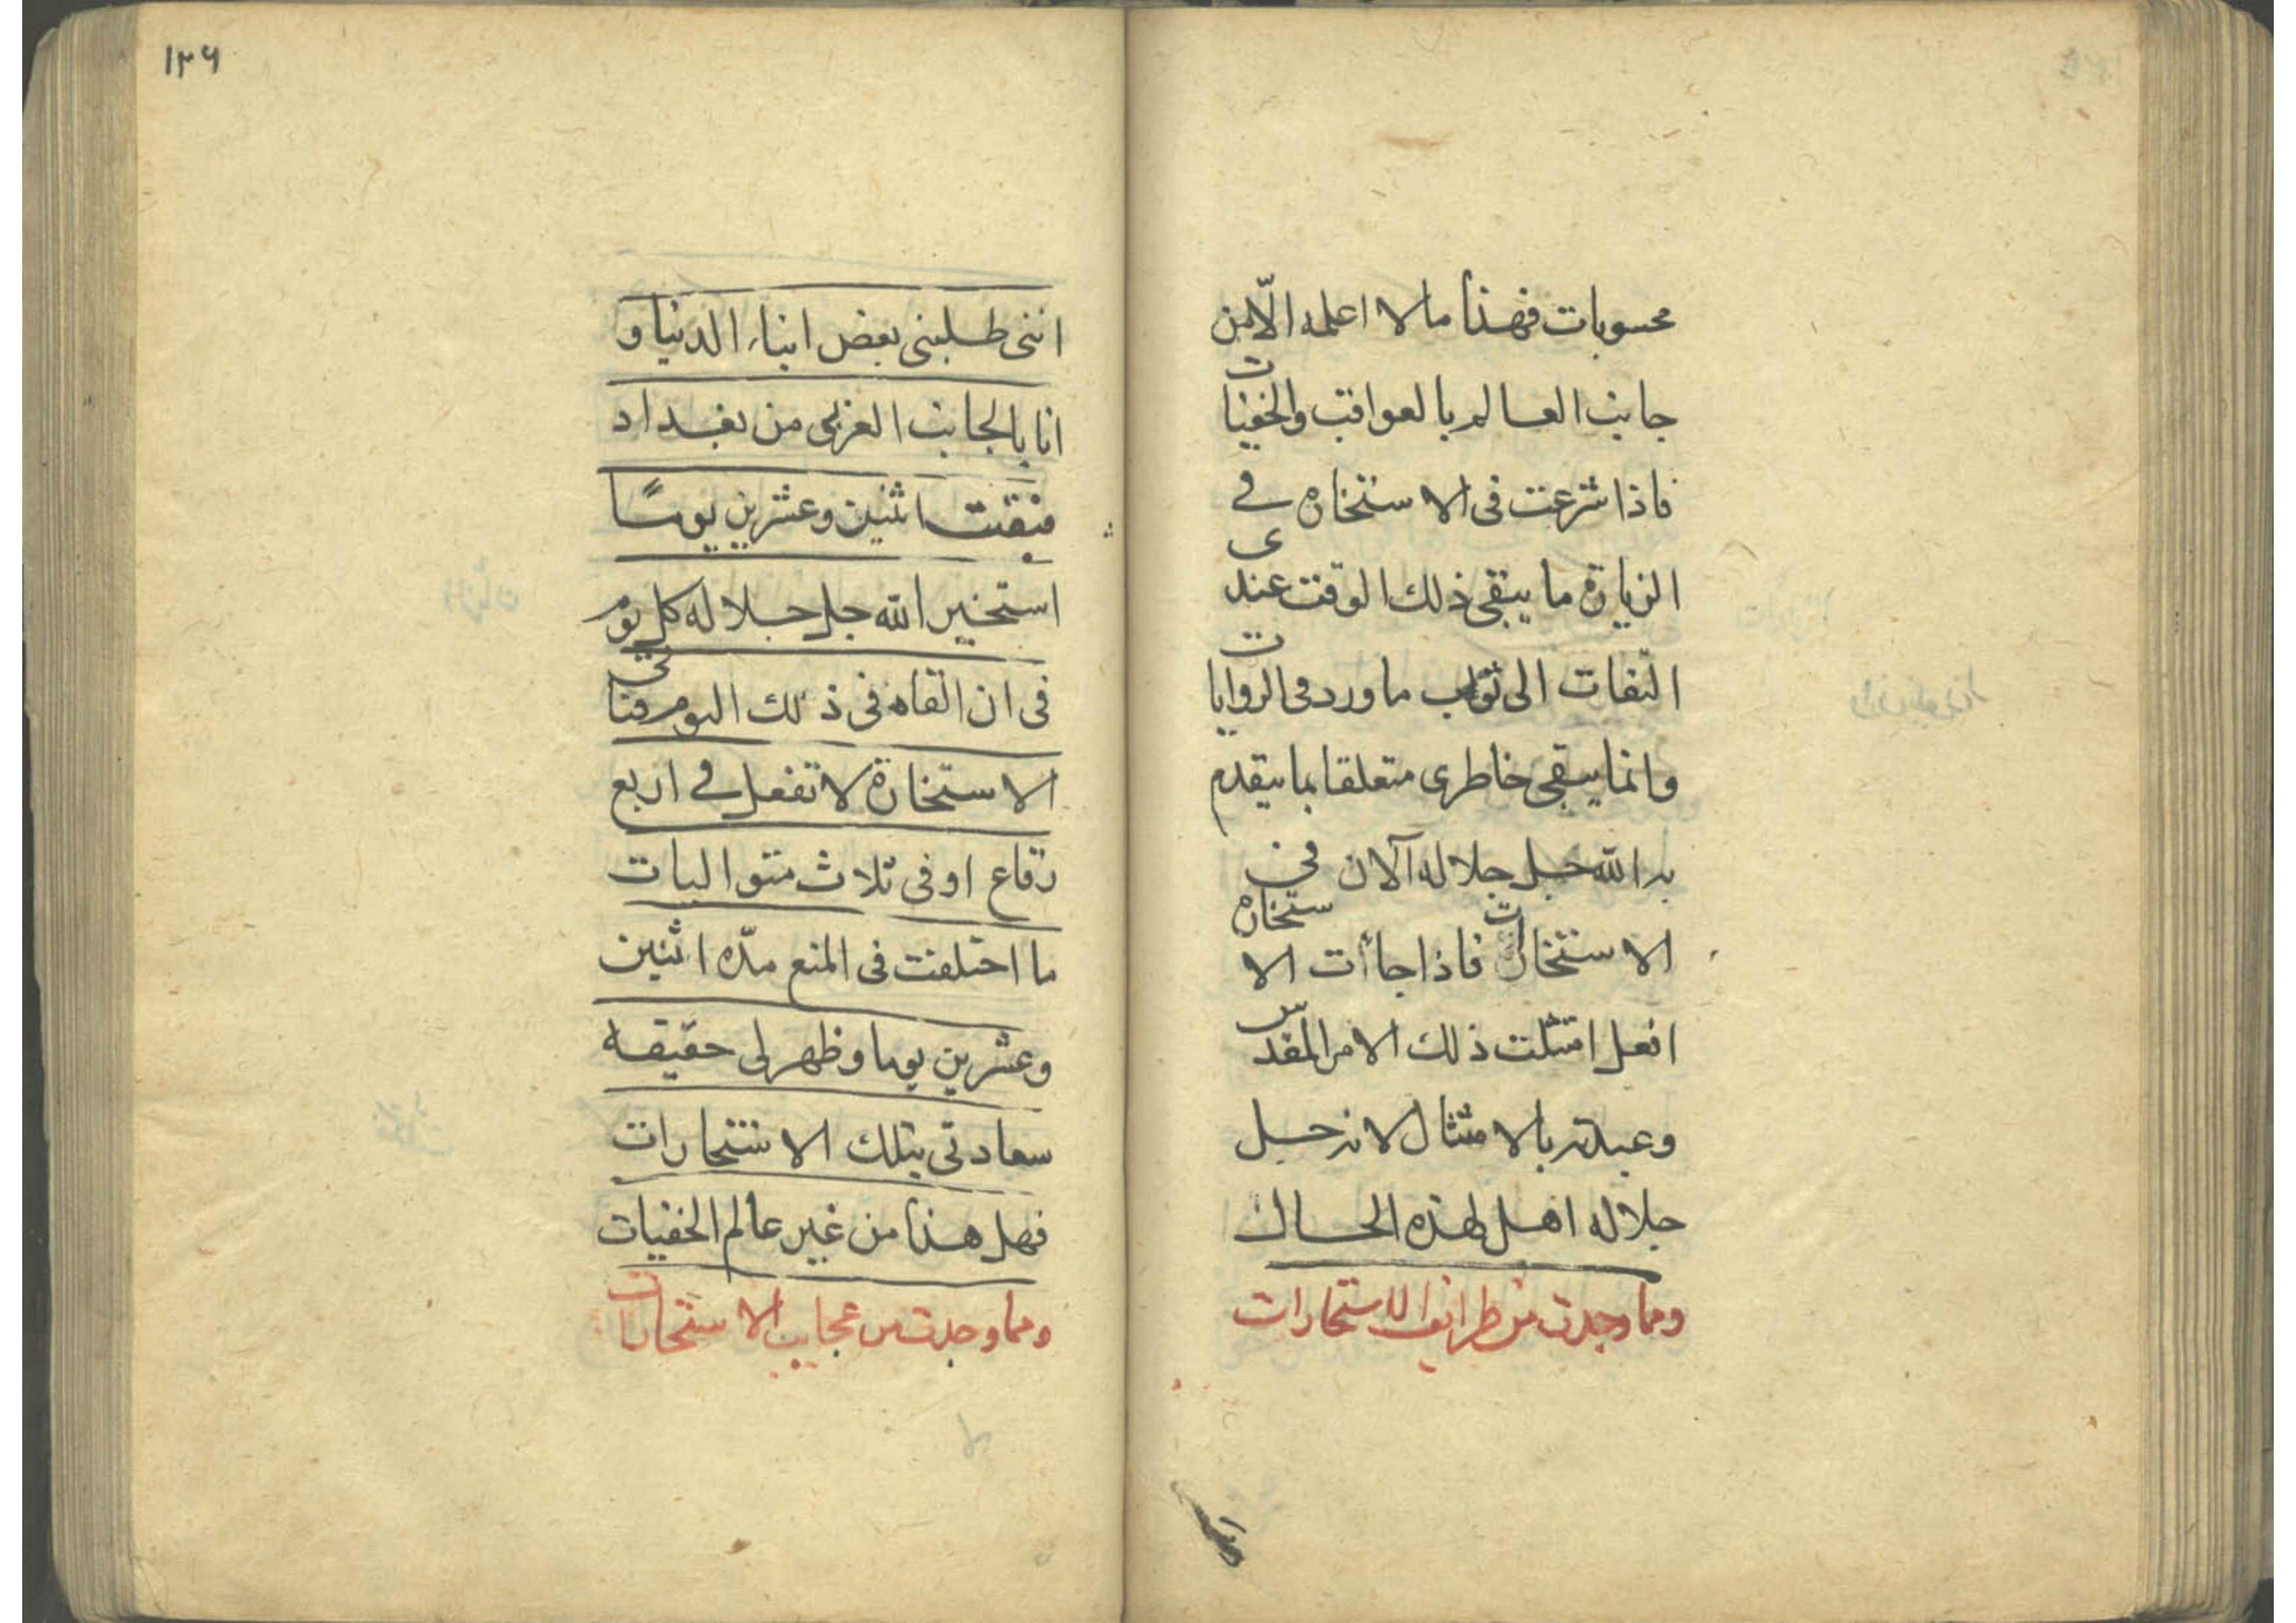 محسوبات فهذا ما لا اعلمه الّا من
جانب العالم بالعواقب والخفيات
فاذا شرعت فى الاستخاره فى
الزيارة ما يبقى ذلك الوقت عندى
التفات الى ثواب ما ورد فى الروايات
وانما يبقى خاطرى متعلقا بما يتقدم
به الله جل جلاله الآن فى
الاستخارات فاذا جاأت الاستخاره
افعل امتثلت ذلك الامر المقدس
وعبدته بالامتثال لانه جل
جلاله اهل لهذه الحال
ومما وجدت من طرايف الاستخارات
١٣۶
اننى طلبنى بعض ابناء الدنيا و
انا بالجانب الغربى من بغداد
فبقيت اثنين وعشرين يومًا
استخير الله جل جلاله كل يوم
فى ان القاه فى ذلك اليوم فتاتى
الاستخارة لا تفعل فى اربع
رقاع او فى ثلاث متواليات
ما اختلفت فى المنع مدّه اثنين
وعشرين يوما وظهر لى حقيقه
سعادتى بتلك الاستخارات
فهل هذا من غير عالم الخفيات
ومما وجدت من عجايب الاستخارات